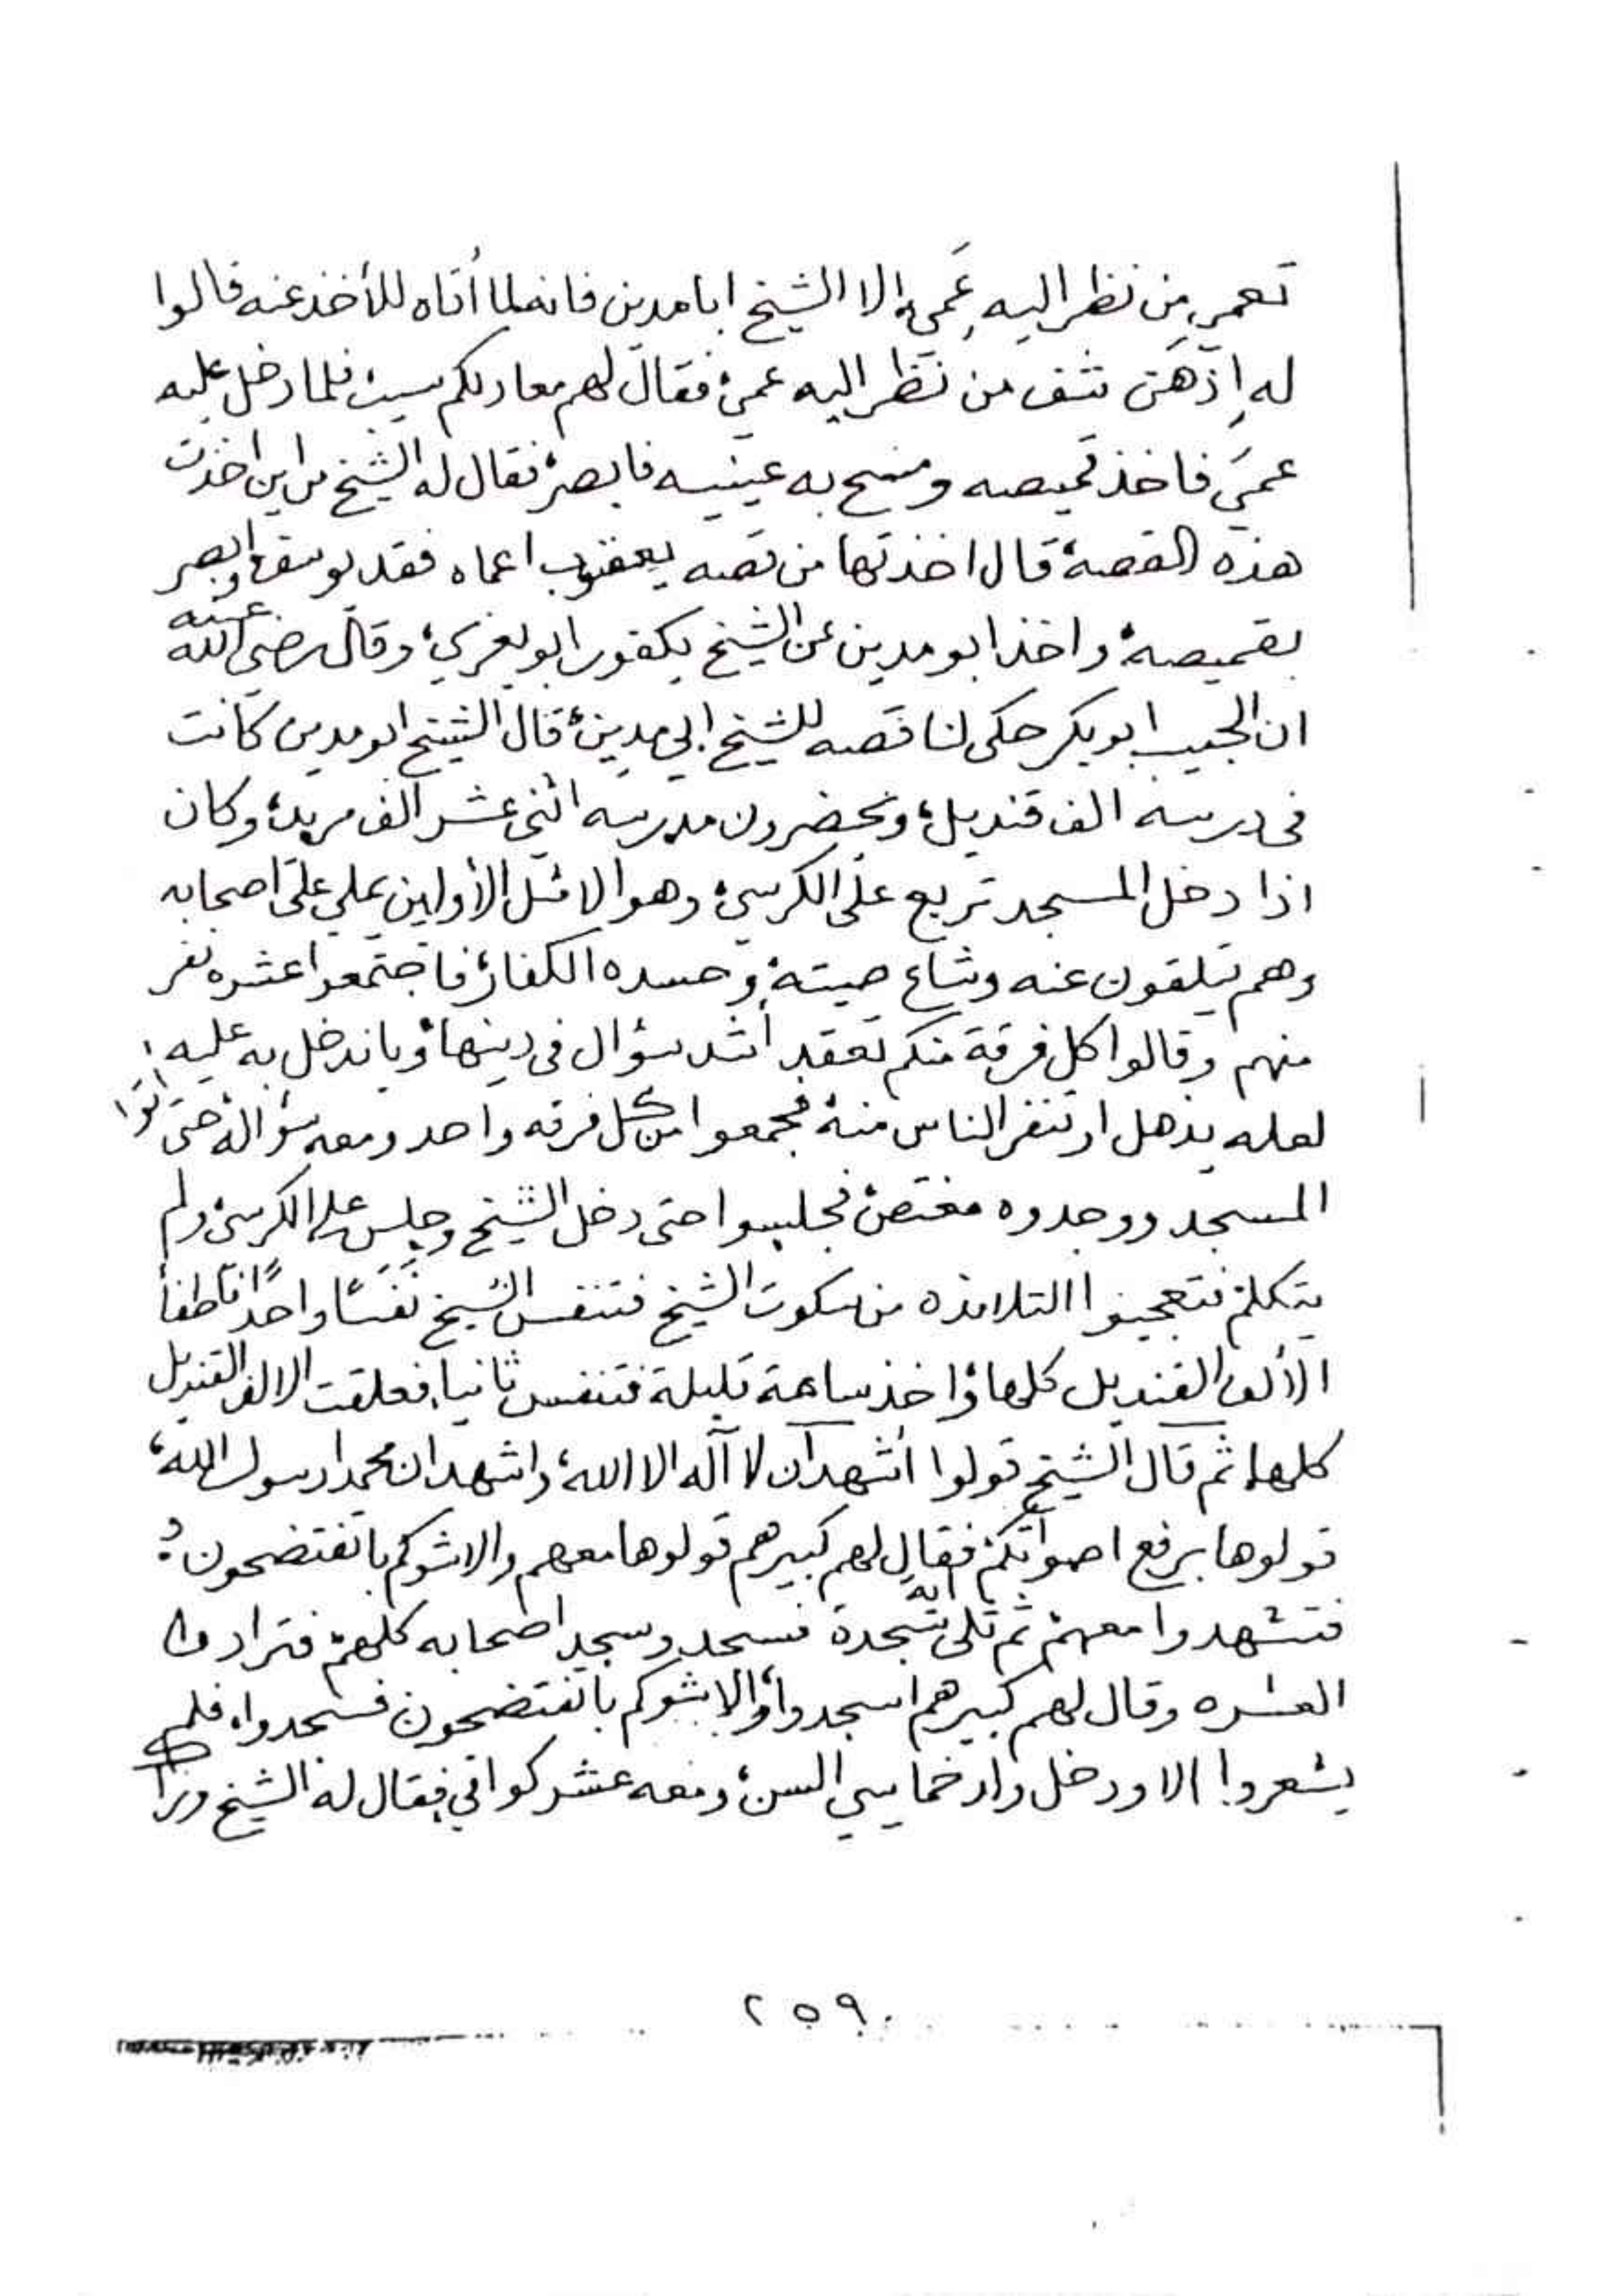 تعمي من نظر اليه عَمي، الا الشيخ ابا مدين فانه لما أتاه للأخذ عنه قالوا
له إذهن شف من نظر اليه عمي، فقال لهم معاد لكم سيب، فلما دخل عليه
عمَي فاخذ قميصه ومسح به عينيه فابصر، فقال له الشيخ من اين اخذت
هذه القصة، قال اخذتها من قصه يعقوب اعماه فقد يوسف وابصر
بقميصه، واخذ ابو مدين عن الشيخ يكفور ابو يعزي، وقال رضي الله عنه
ان الحبيب ابو بكر حكى لنا قصه للشيخ ابي مدين، قال الشيخ ابو مدين كانت
في درسه الف قنديل، ويحضرون مدرسه اثني عشر الف مريد، وكان
اذا دخل المسجد تربع على الكرسي، وهو الا مثل الأولين يملي على اصحابه
وهم يتلقون عنه وشاع صيته، وحسده الكفار، فاجتمعوا عشره نفر
منهم وقالوا كل فرقة منكم تعقد أشد سؤال في دينها، وباندخل به عليه
لعله يذهل او تنفر الناس منه، فجمعوا من كل فرقه واحد ومعه سؤاله حتى اتوا
المسجد ووجدوه مغتص، فجلسوا حتى دخل الشيخ وجلس على الكرسي، ولم
يتكلم، فتعجبوا التلامذه من سكوت الشيخ فتنفس الشيخ نَفَسًا واحدًا فاطفأ
الألف القنديل كلها، واخذ ساعة قليلة فتنفس ثانيا، فعلقت الالف القنديل
كلها، ثم قال الشيخ قولوا أشهد ان لا آله الا الله، واشهد ان محمدا رسول الله،
قولوها برفع اصواتكم، فقال لهم كبيرهم قولوها معهم والاشوكم باتفتضحون،
فتشهدوا معهم، ثم تلى آية سجدة فسجد وسجد اصحابه كلهم، فترادوا
العشره وقال لهم كبيرهم اسجدوا، والاشوكم باتفتضحون فسجدوا، فلم
يشعروا الا ودخل وارد خماسي السن، ومعه عشر كوافي، فقال له الشيخ
٢٥٩